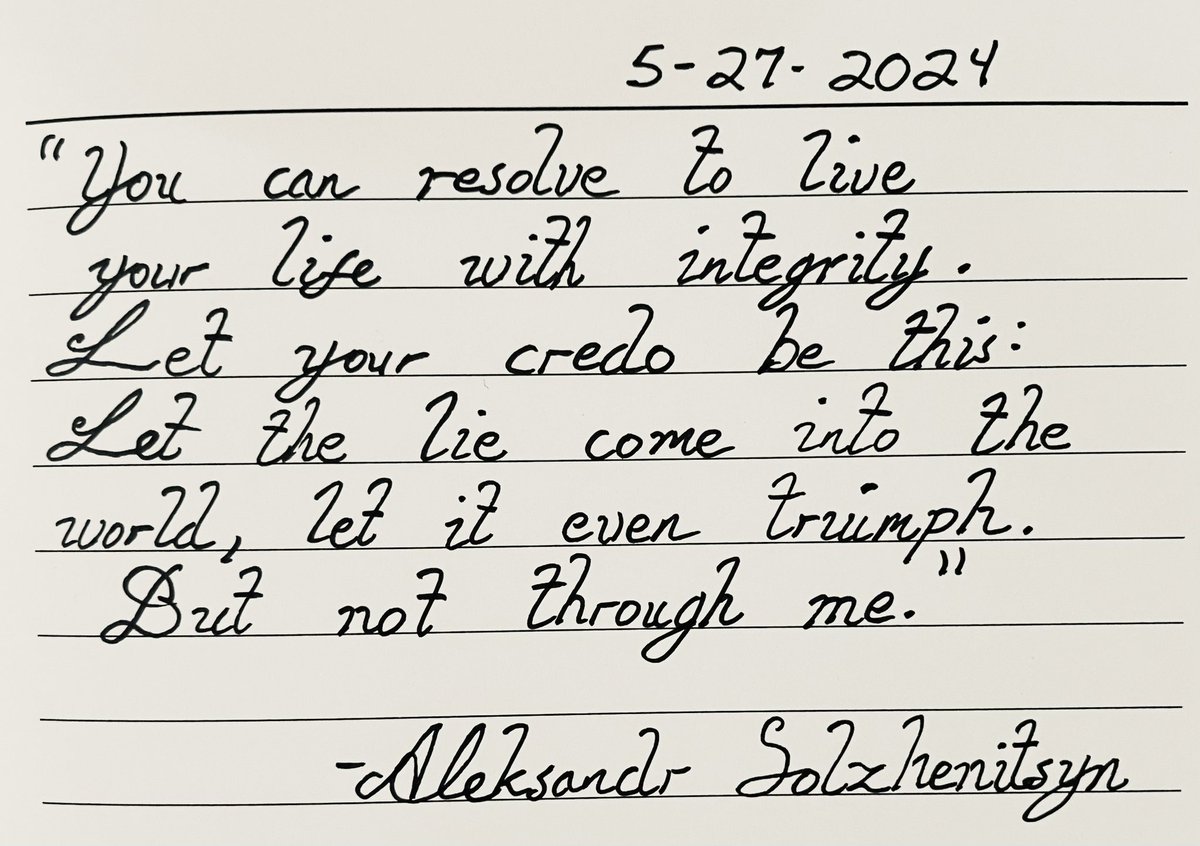 5-27-2024
"You can resolve to live
your life with integrity.
Let your credo be this:
Let the lie come into the
world, let it even truimph.
But not through me."
-Aleksandr Solzhenitsyn